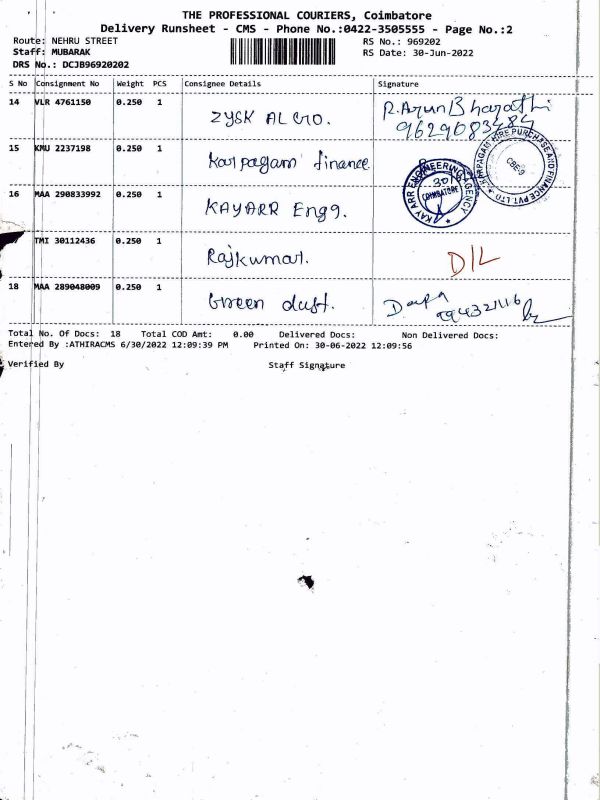 THE PROFESSIONAL COURIERS, Coimbatore
Delivery Runsheet - CMS - Phone No.:0422-3505555 - Page No.:2
Route: NEHRU STREET
RS No.: 969202
Staff: MUBARAK
RS Date: 30-Jun-2022
DRS No.: DCJB96920202
S No Consignment No Weight PCS Consignee Details Signature
14 VLR 4761150 0.250 1 ZYSK R.Arun Bharathi
9629083484
15 KMU 2237198 0.250 1 karpagam finance
KARPAGAM HIRE PURCHASE AND FINANCE PVT. LTD
CBE-9
16 MAA 290833992 0.250 1 KAYARR Engg.
KAY ARR ENGINEERING AGENCY
COIMBATORE
TMI 30112436 0.250 1 Rajkumar. D/L
18 MAA 289048009 0.250 1 Green dust.
Total No. Of Docs: 18 Total COD Amt: 0.00 Delivered Docs: Non Delivered Docs:
Entered By :ATHIRACMS 6/30/2022 12:09:39 PM Printed On: 30-06-2022 12:09:56
Verified By Staff Signature